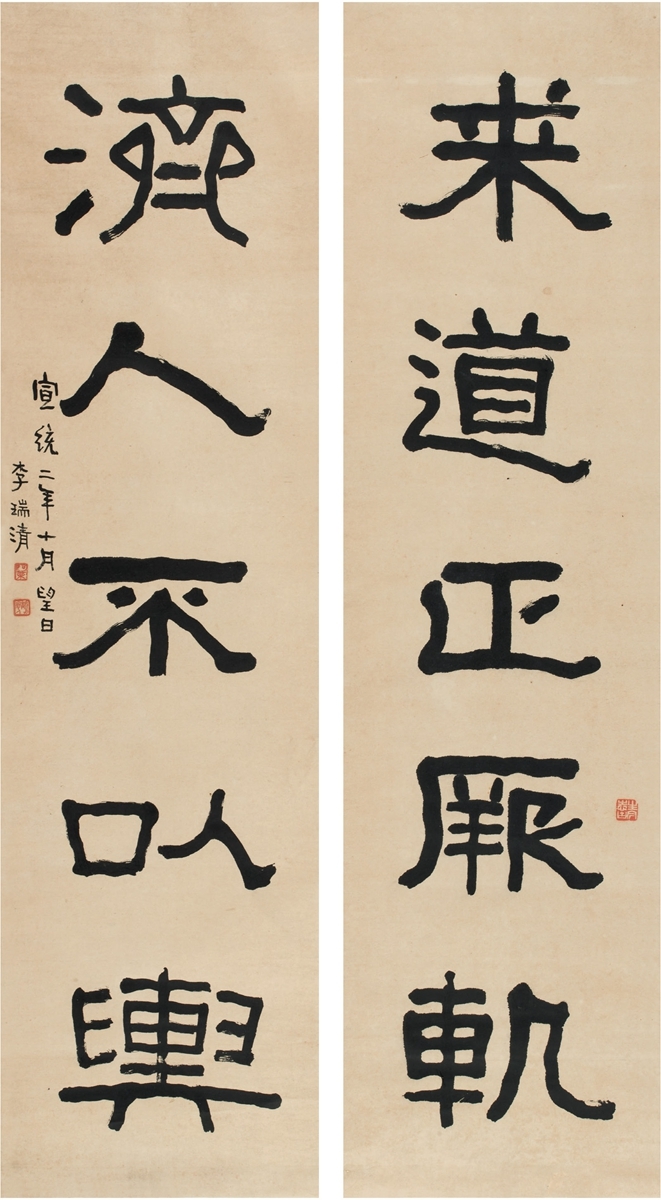 求道正厥軌
濟人不以輿
宣統二年十月望日
李瑞清